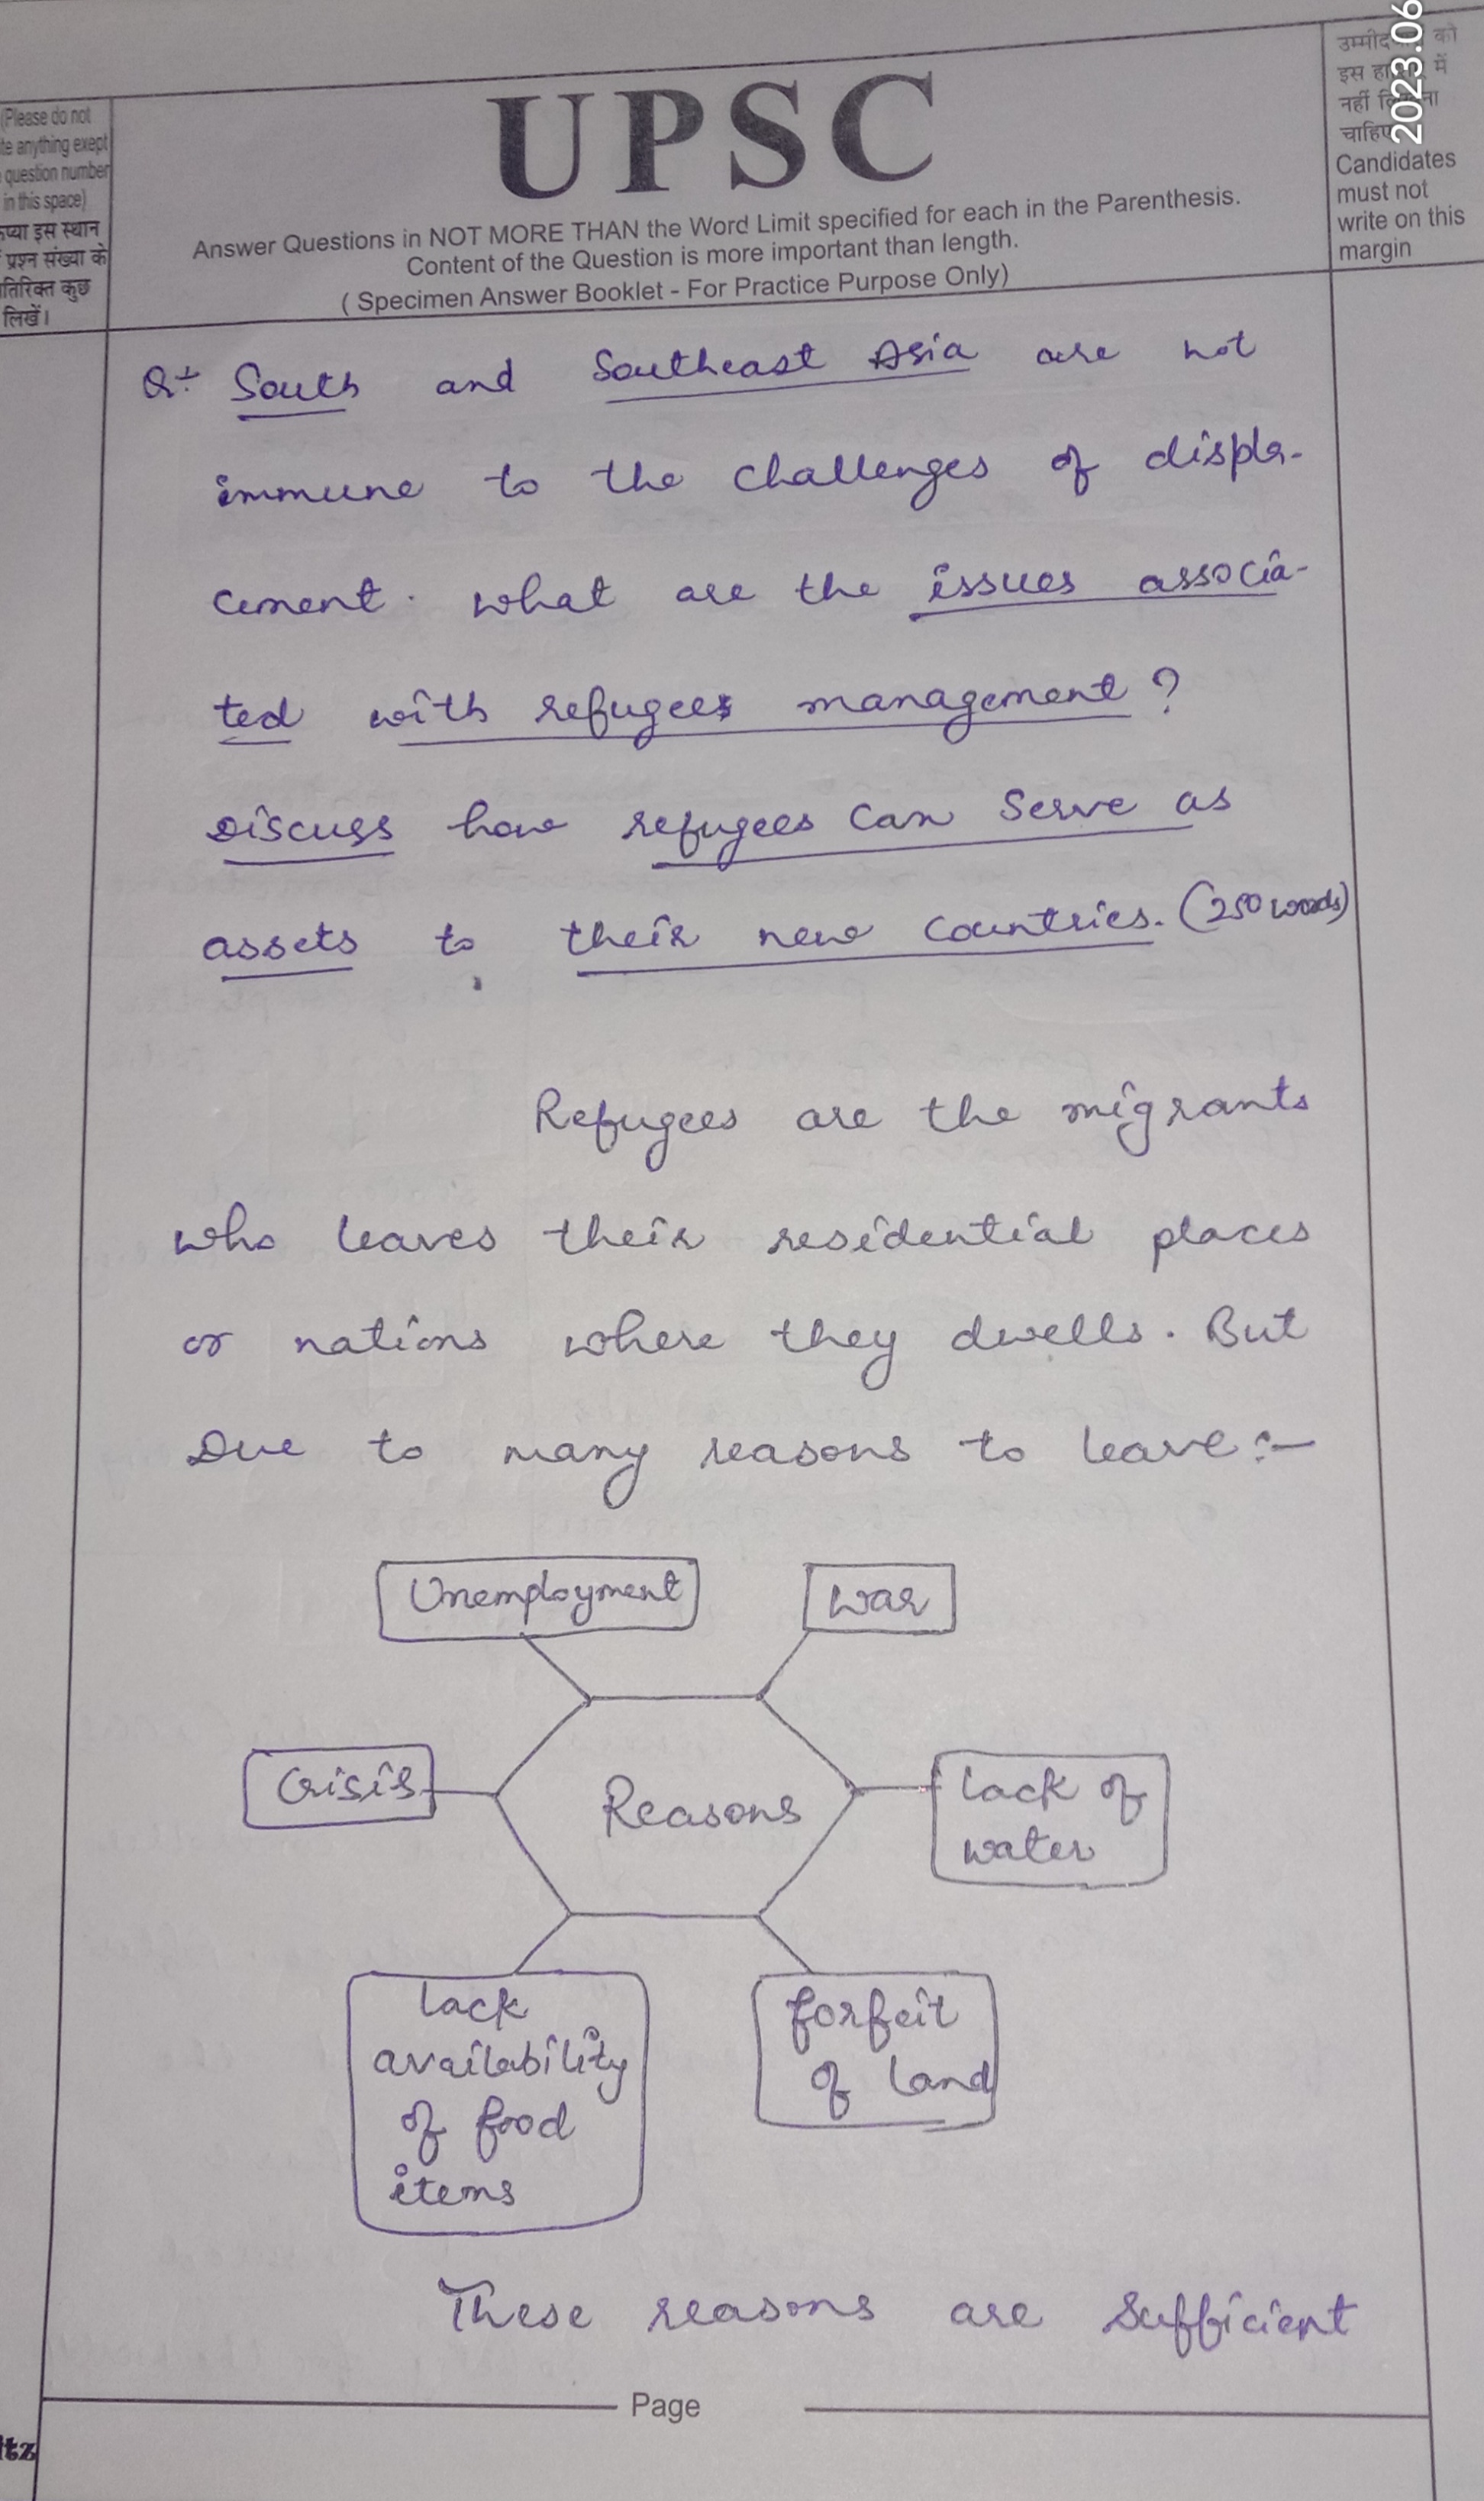 2023.06
(Please do not
te anything exept
question number
in this space)
इस स्थान
प्रश्न संख्या के
तिरिक्त कुछ
लिखें।
UPSC
Answer Questions in NOT MORE THAN the Word Limit specified for each in the Parenthesis.
Content of the Question is more important than length.
( Specimen Answer Booklet - For Practice Purpose Only)
को
इस में
नहीं
Candidates
must not
write on this
margin
Q:- South and Southeast Asia are not
immune to the challenges of displa-
cement. what are the issues associa-
ted with refugees management?
Discuss how refugees can serve as
assets to their new countries. (250 words)
Refugees are the migrants
who leaves their residential places
or nations where they dwells. But
Due to many reasons to leave:-
Unemployment
War
Crisis
Reasons
lack of
water
lack
availability
of food
items
forfeit
of land
These reasons are sufficient
Page